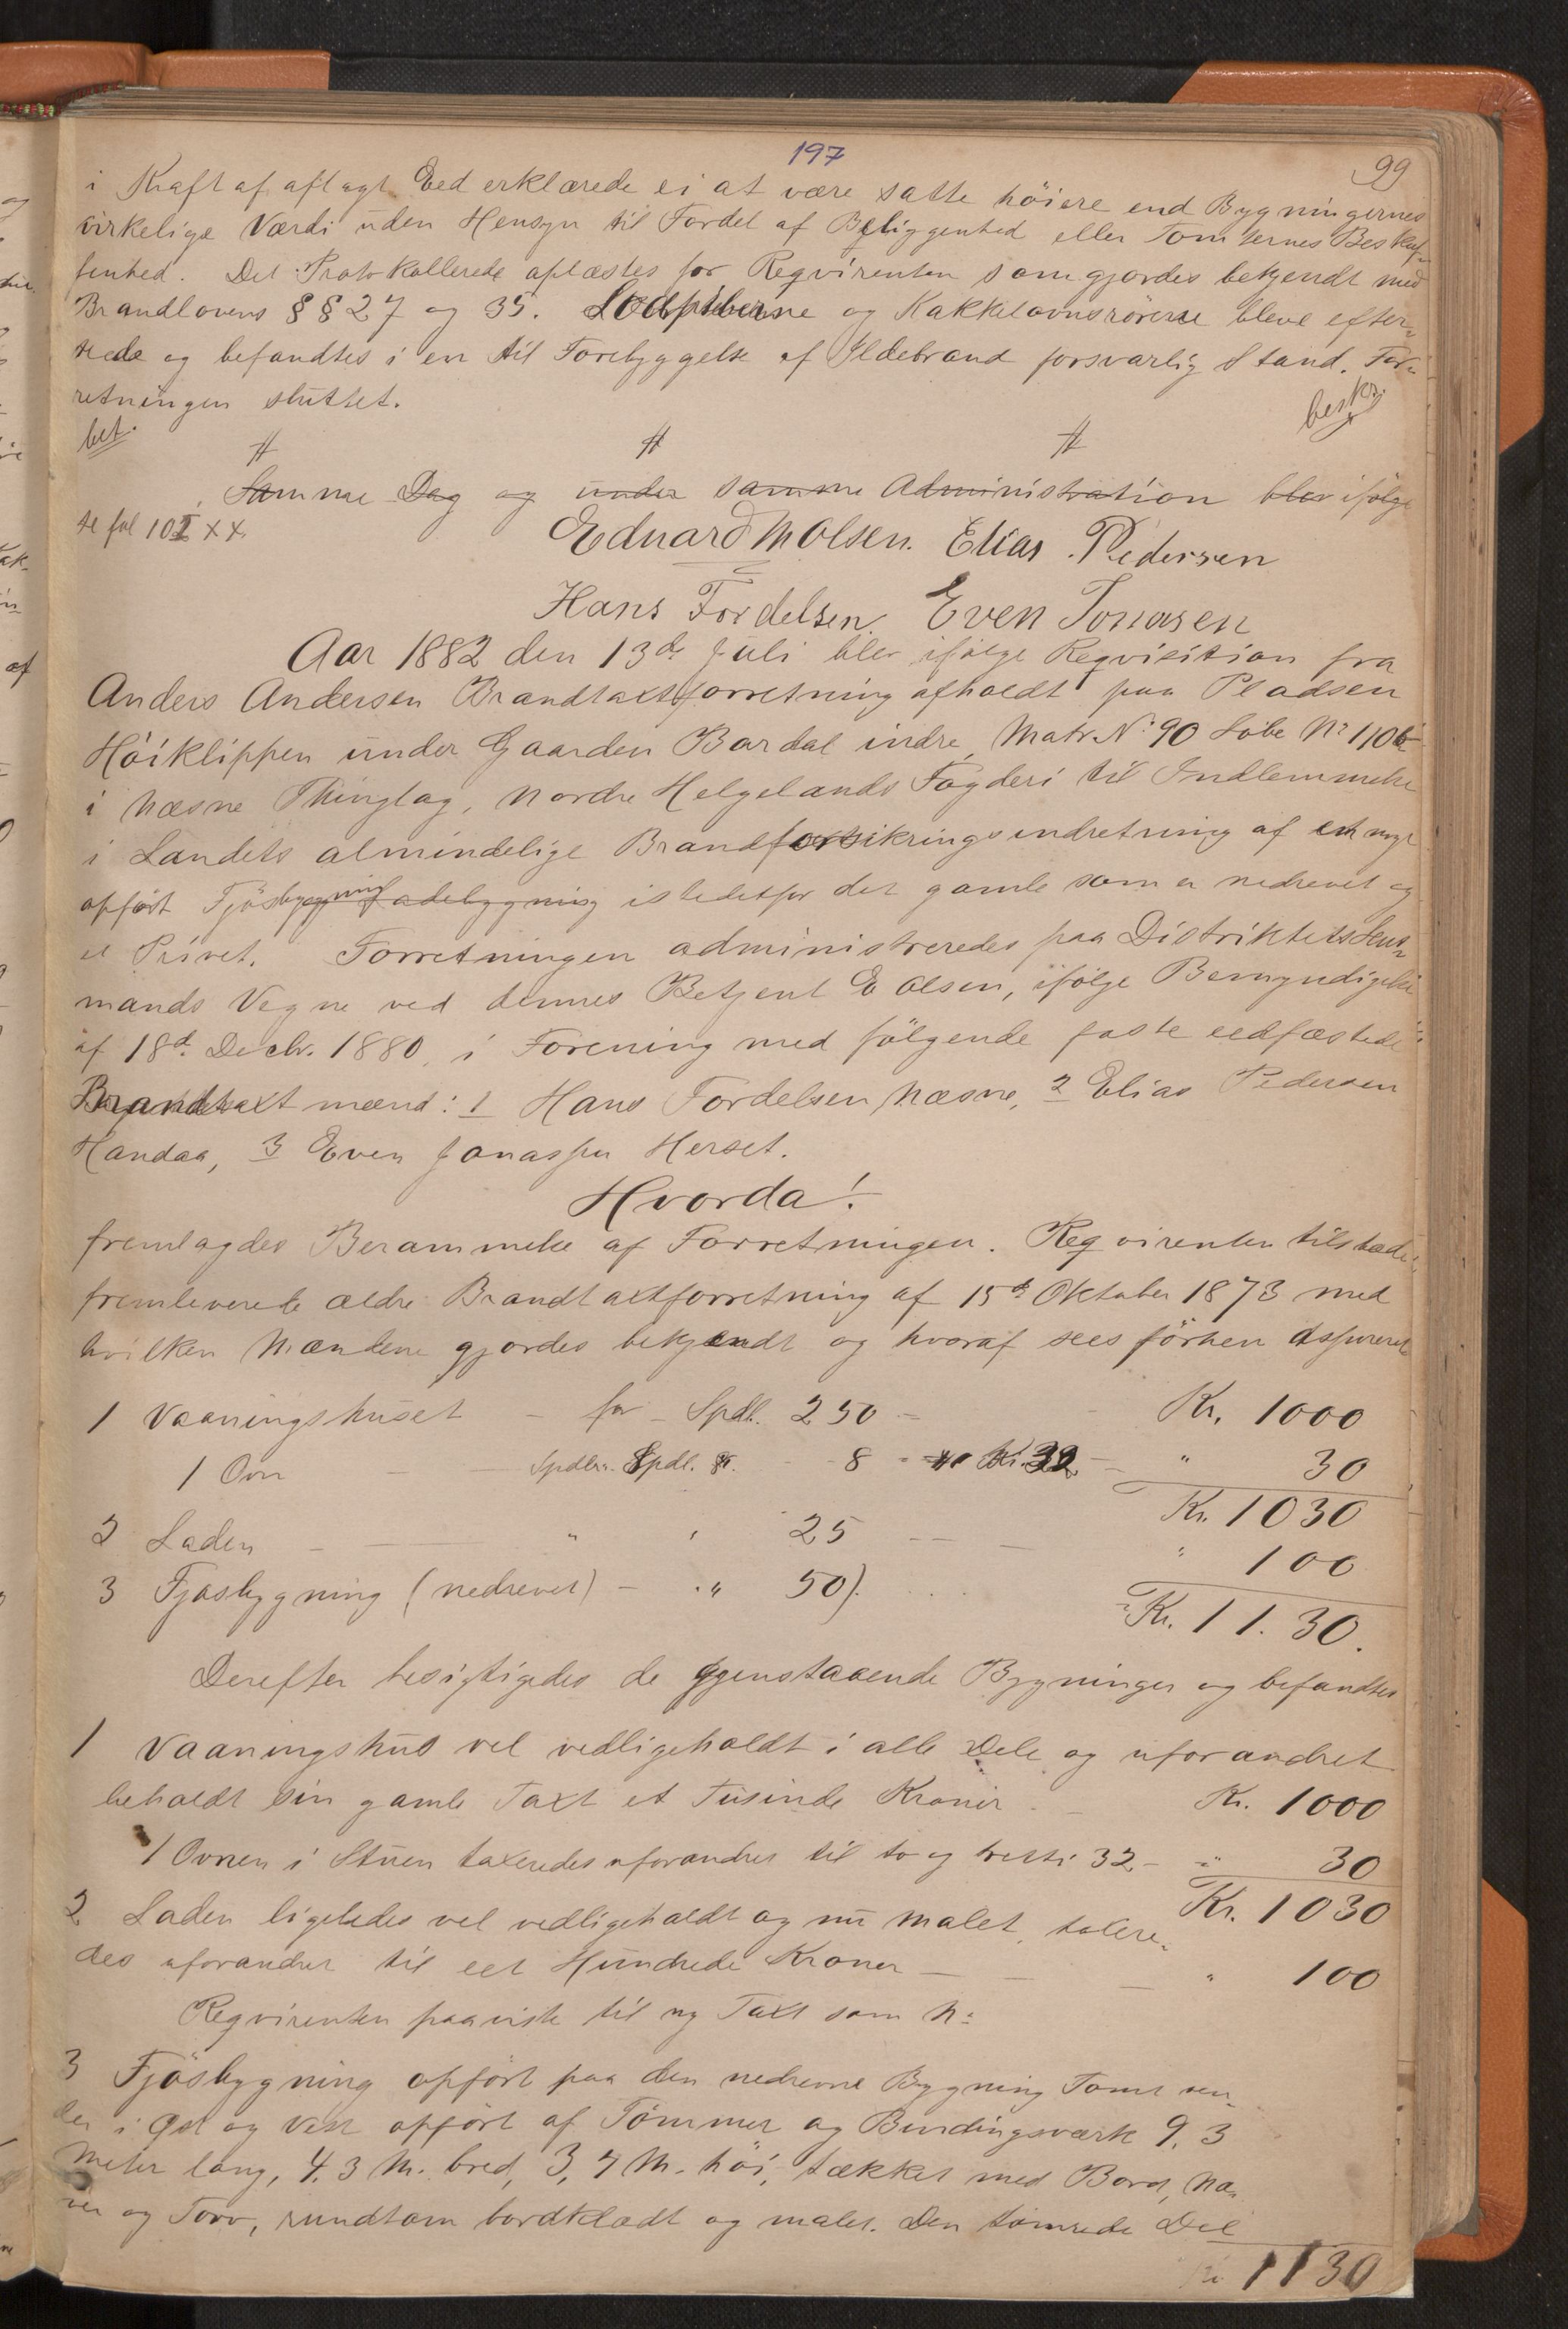 197
99
i Kraft af aflagt Eed erklærede ei at være satte höiere end Bygningernes
virkelige Værdi uden Hensyn til Fordel af Beliggenhed eller Tomternes Beskaf-
fenhed. Det Protokollerede oplæstes for Reqvirenten som gjordes bekjendt med
Brandlovens §§ 27 og 35. Lodpiberne og Kakkelovnsrörene bleve efter-
seede og befandtes i en til Forebyggelse af Ildebrand forsvarlig Stand. For-
retningen sluttet.
bet. beskr.
Samme Dag og under samme Administration blev ifölge
se fol 101 XX.
Eduard M Olsen. Elias Pedersen
Hans Fordelsen Even Jonasen
Aar 1882 den 13de Juli blev ifölge Reqvisition fra
Anders Andersen Brandtaxtforretning afholdt paa Pladsen
Höiklippen under Gaarden Bardal indre, Matr. No 90 Löbe No 110b
i Næsne Thinglag, Nordre Helgelands Fogderi til Indlemmelse
i Landets almindelige Brandforsikringsindretning af et nyt
opfört Fjösbygning ladebygning istedetfor det gamle som er nedrevet og
et Privet. Forretningen administreredes paa Distriktets Lens-
mands Vegne ved dennes Betjent E Olsen, ifölge Bemyndigelse
af 18d. Decbr. 1880, i Forening med fölgende faste eedfæstede
Brandtaxtmænd: 1 Hans Fordelsen Næsne, 2 Elias Pedersen
Handaa, 3 Even Jonassen Herset.
Hvorda!
fremlagdes Berammelse af Forretningen. Reqvirenten tilstæde
fremleverede ældre Brandtaxtforretning af 15de Oktober 1873 med
hvilken Mændene gjordes bekjendt og hvoraf sees förhen assureret
1 Vaaningshuset - for - Spdl. 250 - Kr. 1000
1 Ovn - Spdlr. Spdl. 8. - 8 - Kr. 32 - " 30
Kr. 1030
2 Laden - " " 25 - " 100
3 Fjösbygning (nedrevet) - " 50).
Kr. 11.30.
Derefter besigtigedes de gjenstaaende Bygninger og befandtes
1 Vaaningshus vel vedligeholdt i alle Dele og uforandret
beholdt sin gamle Taxt et Tusinde Kroner - Kr. 1000
1 Ovnen i Stuen taxeredes uforandret til to og tretti 32 - " 30
Kr. 1030
2 Laden ligeledes vel vedligeholdt og nu malet, taxere-
des uforandret til eet Hundrede Kroner - " 100
Reqvirenten paaviste til ny Taxt som No
3 Fjösbygning opfört paa den nedrevne Bygning Tomt ven-
der i Öst og Vest opfört af Tömmer og Bindingsværk 9.3
Meter lang, 4.3 M. bred, 3,7 M. höi, tækket med Bord, Næ-
ver og Torv, rundtom bordklædt og malet. Den tömrede Del
Kr 1130